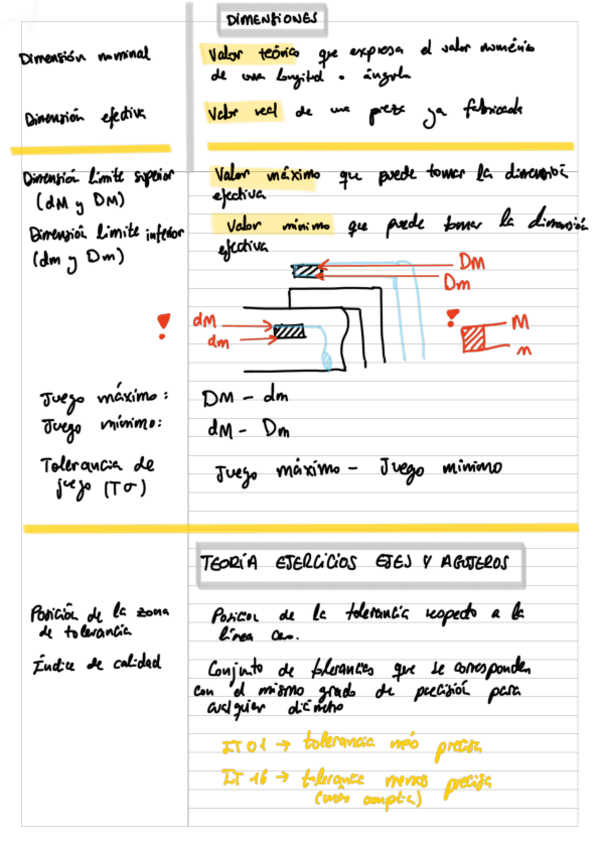 DIMENSIONES
Dimensión nominal
Valor teórico que expresa el valor numérico
de una longitud o ángulo
Dimensión efectiva
Valor real de una pieza ya fabricada
Dimensión límite superior
(dM y DM)
Valor máximo que puede tomar la dimensión
efectiva
Dimensión límite inferior
(dm y Dm)
Valor mínimo que puede tomar la dimensión
efectiva
DM
Dm
! dM
dm
! M
m
Juego máximo:
DM - dm
Juego mínimo:
dM - Dm
Tolerancia de
juego (Tσ)
Juego máximo - Juego mínimo
TEORÍA EJERCICIOS EJES Y AGUJEROS
Posición de la zona
de tolerancia
Posición de la tolerancia respecto a la
línea cero.
Índice de calidad
Conjunto de tolerancias que se corresponden
con el mismo grado de precisión para
cualquier
IT 01 → tolerancia más precisa
IT 16 → tolerancia menos precisa
(más amplia)